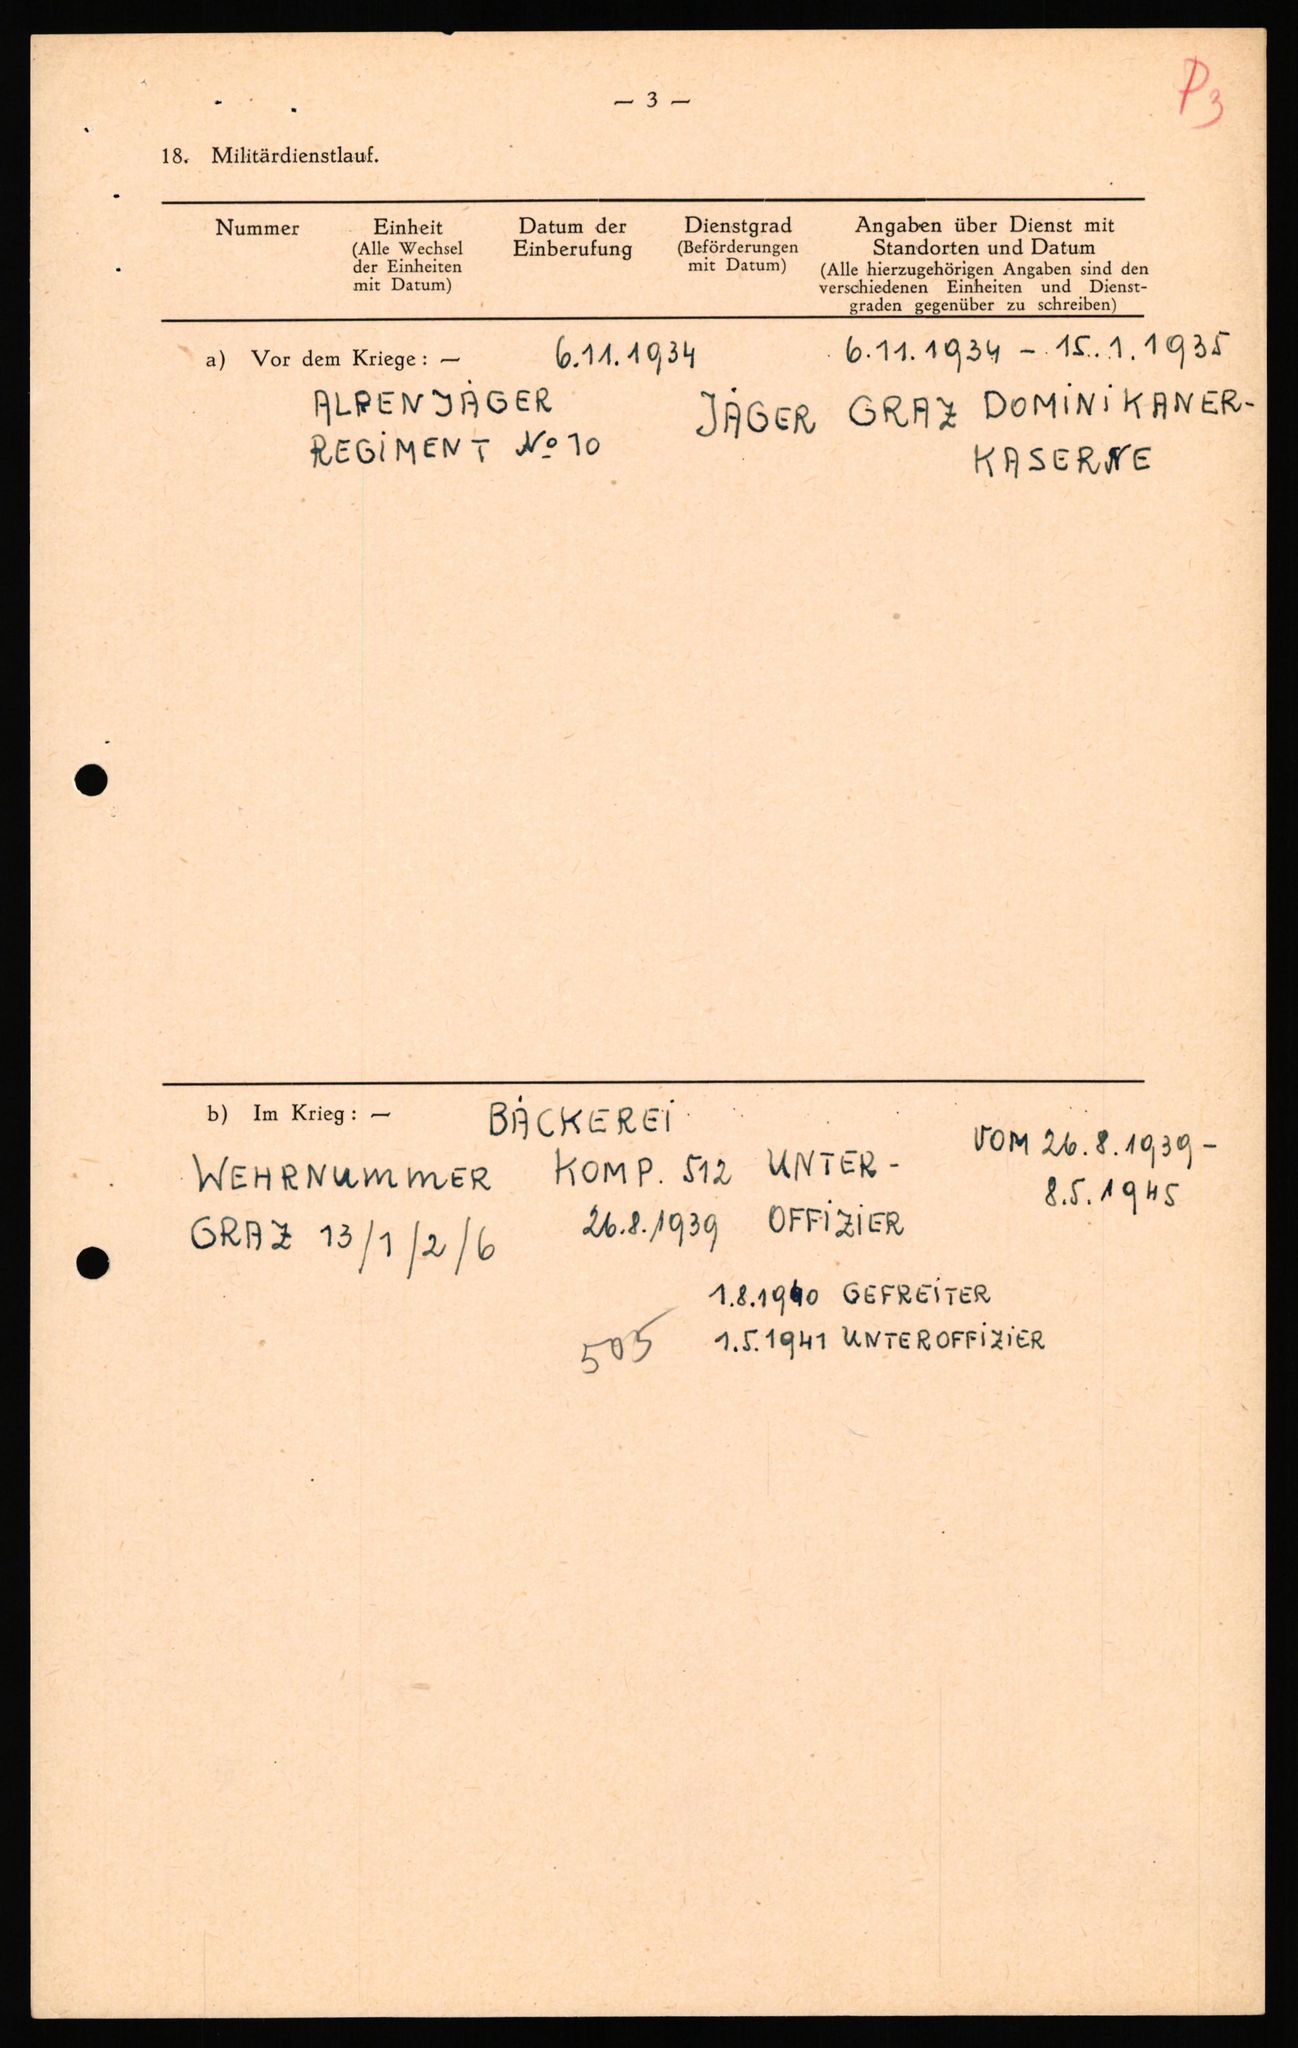 — 3 —
P3
18. Militärdienstlauf.
Nummer
Einheit
(Alle Wechsel
der Einheiten
mit Datum)
Datum der
Einberufung
Dienstgrad
(Beförderungen
mit Datum)
Angaben über Dienst mit
Standorten und Datum
(Alle hierzugehörigen Angaben sind den
verschiedenen Einheiten und Dienst-
graden gegenüber zu schreiben)
a) Vor dem Kriege: — 6.11.1934 6.11.1934 - 15.1.1935
ALPENJÄGER JÄGER GRAZ DOMINIKANER-
REGIMENT No 10 KASERNE
b) Im Krieg: — BÄCKEREI VOM 26.8.1939-
WEHRNUMMER KOMP. 512 UNTER- 8.5.1945
GRAZ 13/1/2/6 26.8.1939 OFFIZIER
1.8.1940 GEFREITER
505 1.5.1941 UNTEROFFIZIER